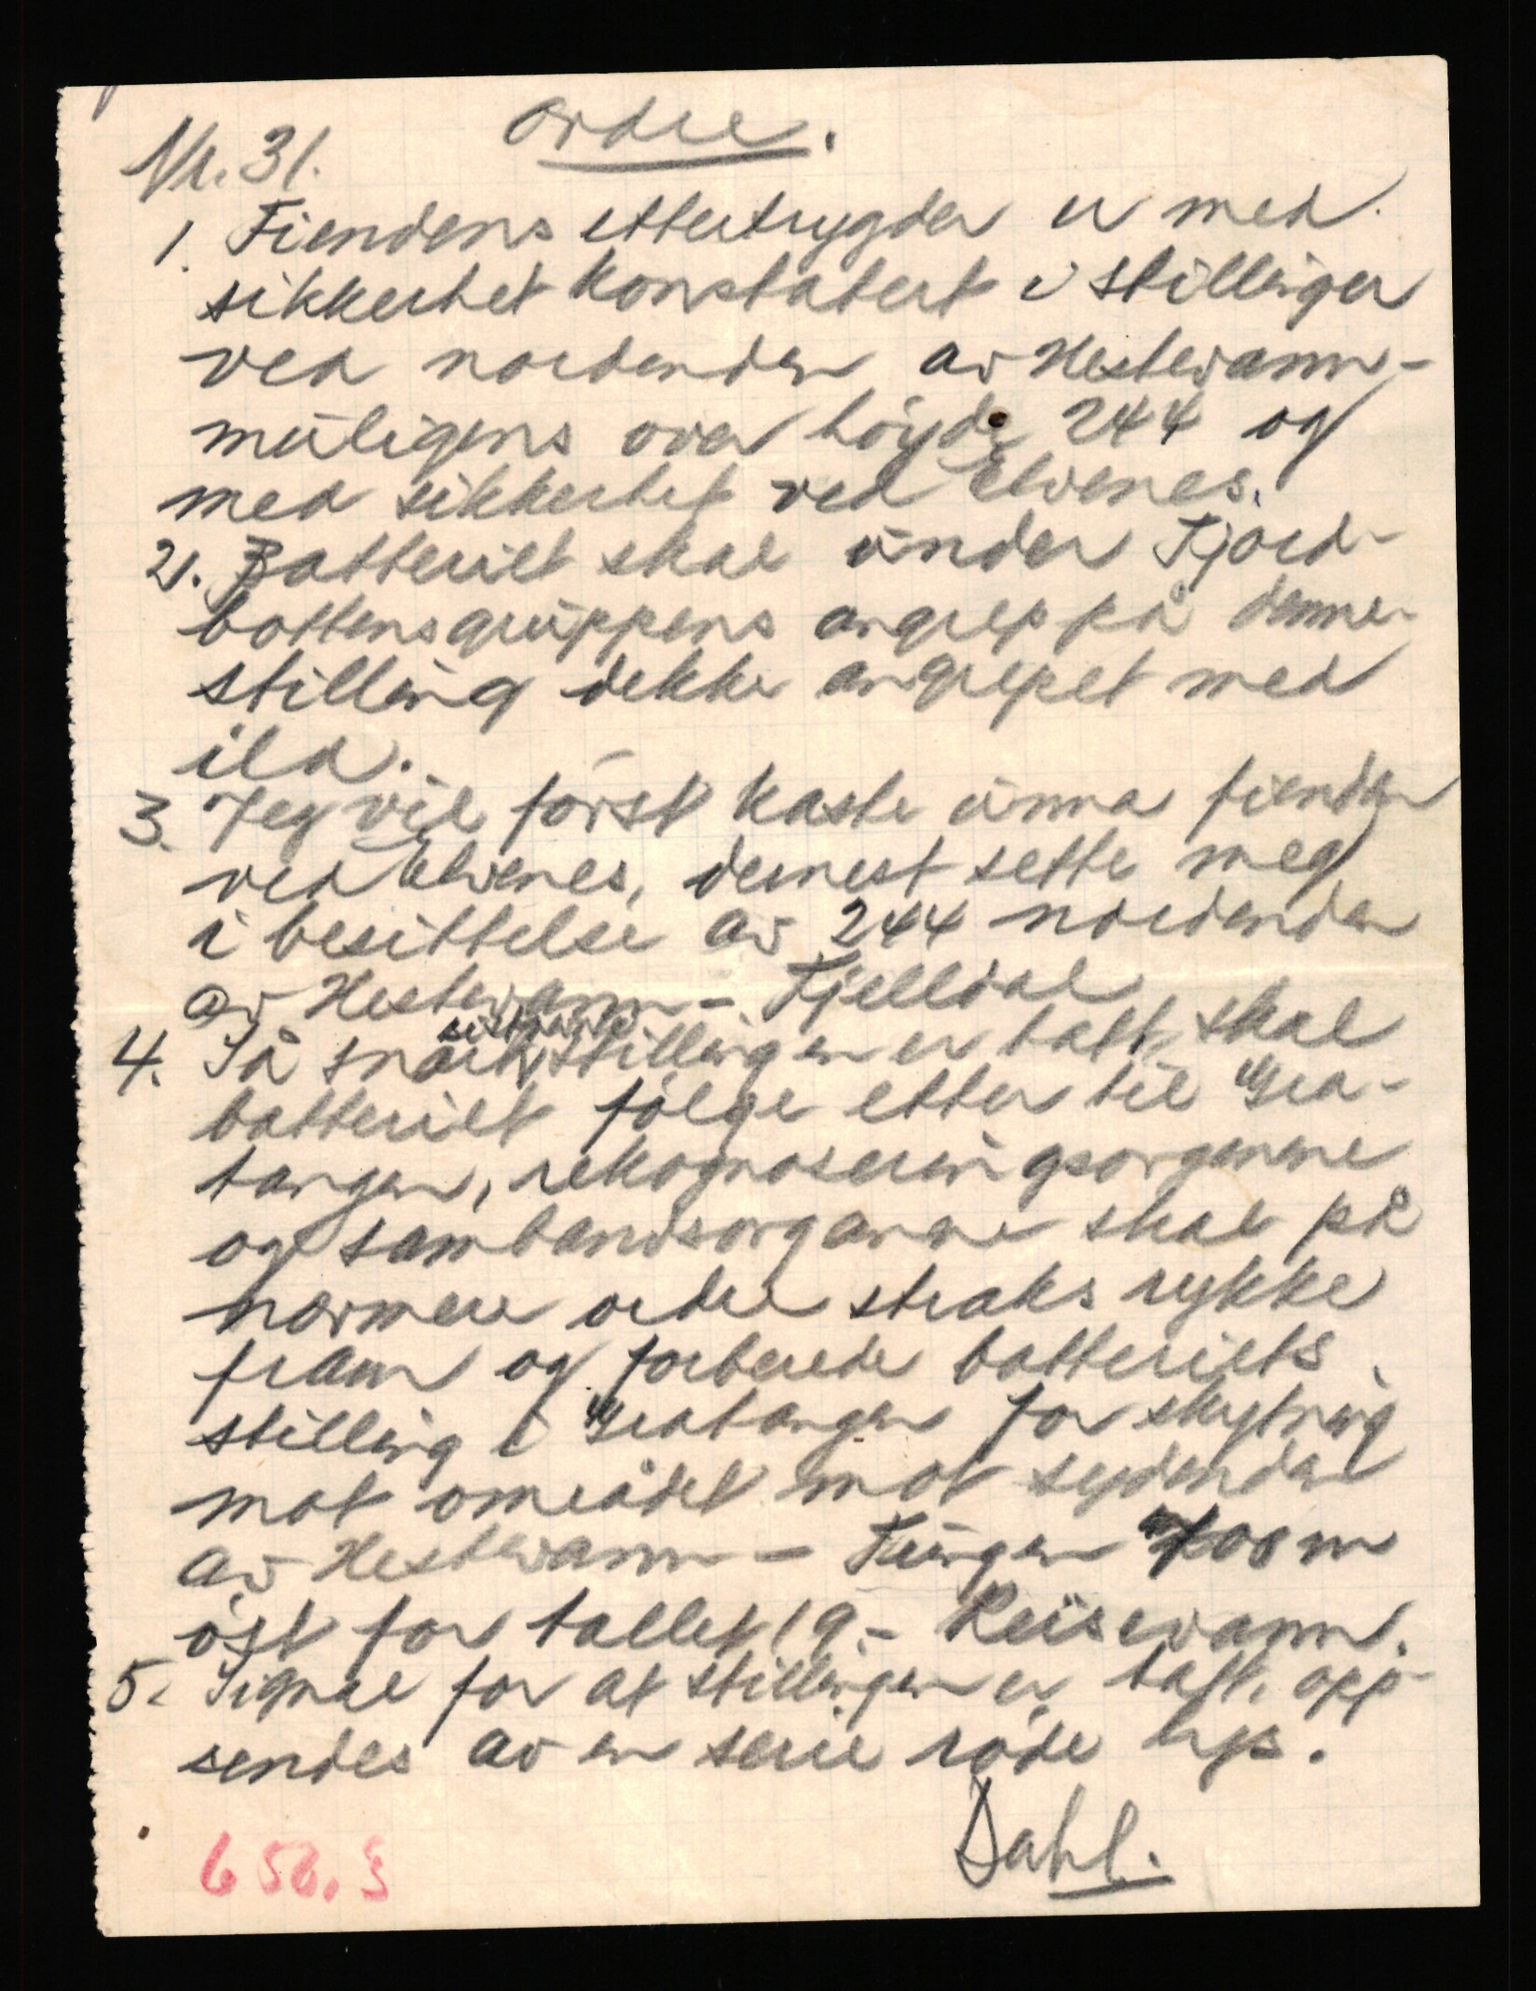 Ordre.
Nr. 31.
1. Fiendens ettertrygder er med
sikkerhet konstatert i stillinger
ved nordenden av Hestevann -
muligens over høyde 244 og
med sikkerhet ved Elvenes.
2. Batteriet skal under Fjord-
bottensgruppens angrep på denne
stilling dekke angrepet med
ild.
3. Jeg vil først kaste unna fienden
ved Elvenes, dernest sette meg
i besittelse av 244 nordenden
av Hestevann - Fjelldal
4. Så snart sistnevnte stillingen er tatt, skal
batteriet følge etter til Gra-
tangen, rekognoseringsorganene
og sambandsorganene skal på
nærmere ordre straks rykke
fram og forberede batteriets
stilling i Gratangen for skytning
mot området mot sydenden
av Hestevann - 700 m
øst for tallet 19.- Reisevann.
5. Signal for at stillingen er tatt, opp-
sendes av en serie røde lys.
Dahl.
656.5